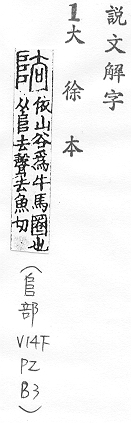 説文解字
1大徐本
阹 依山谷爲牛馬圈也
从𨸏去聲去魚切
(𨸏部 V14下 P2 B3)